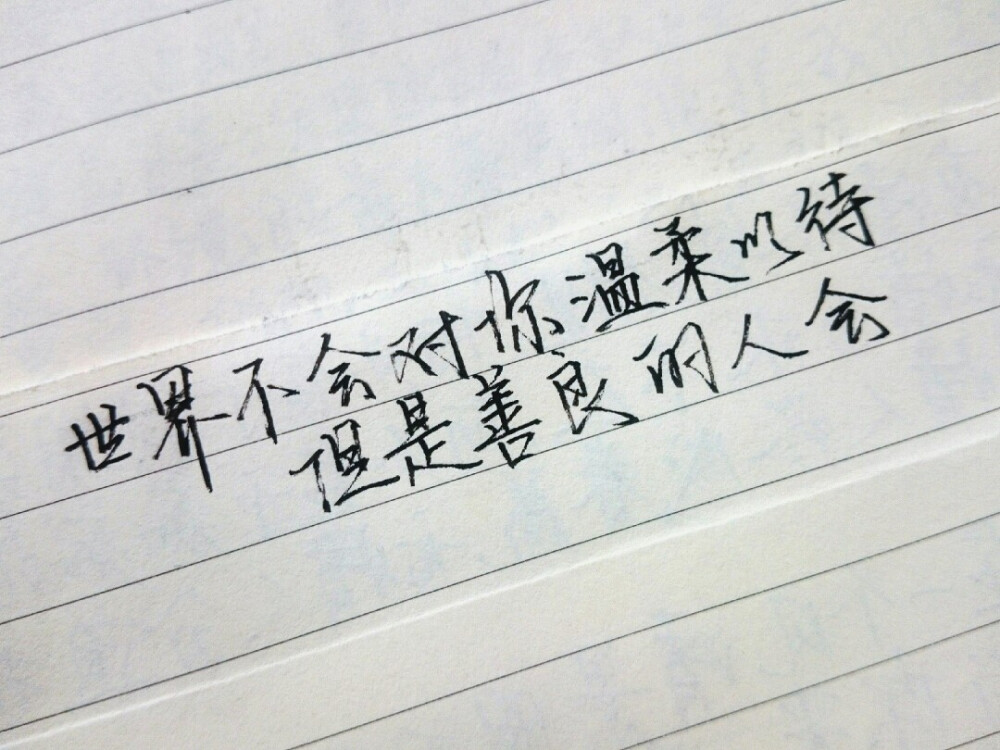 世界不会对你温柔以待
但是善良的人会